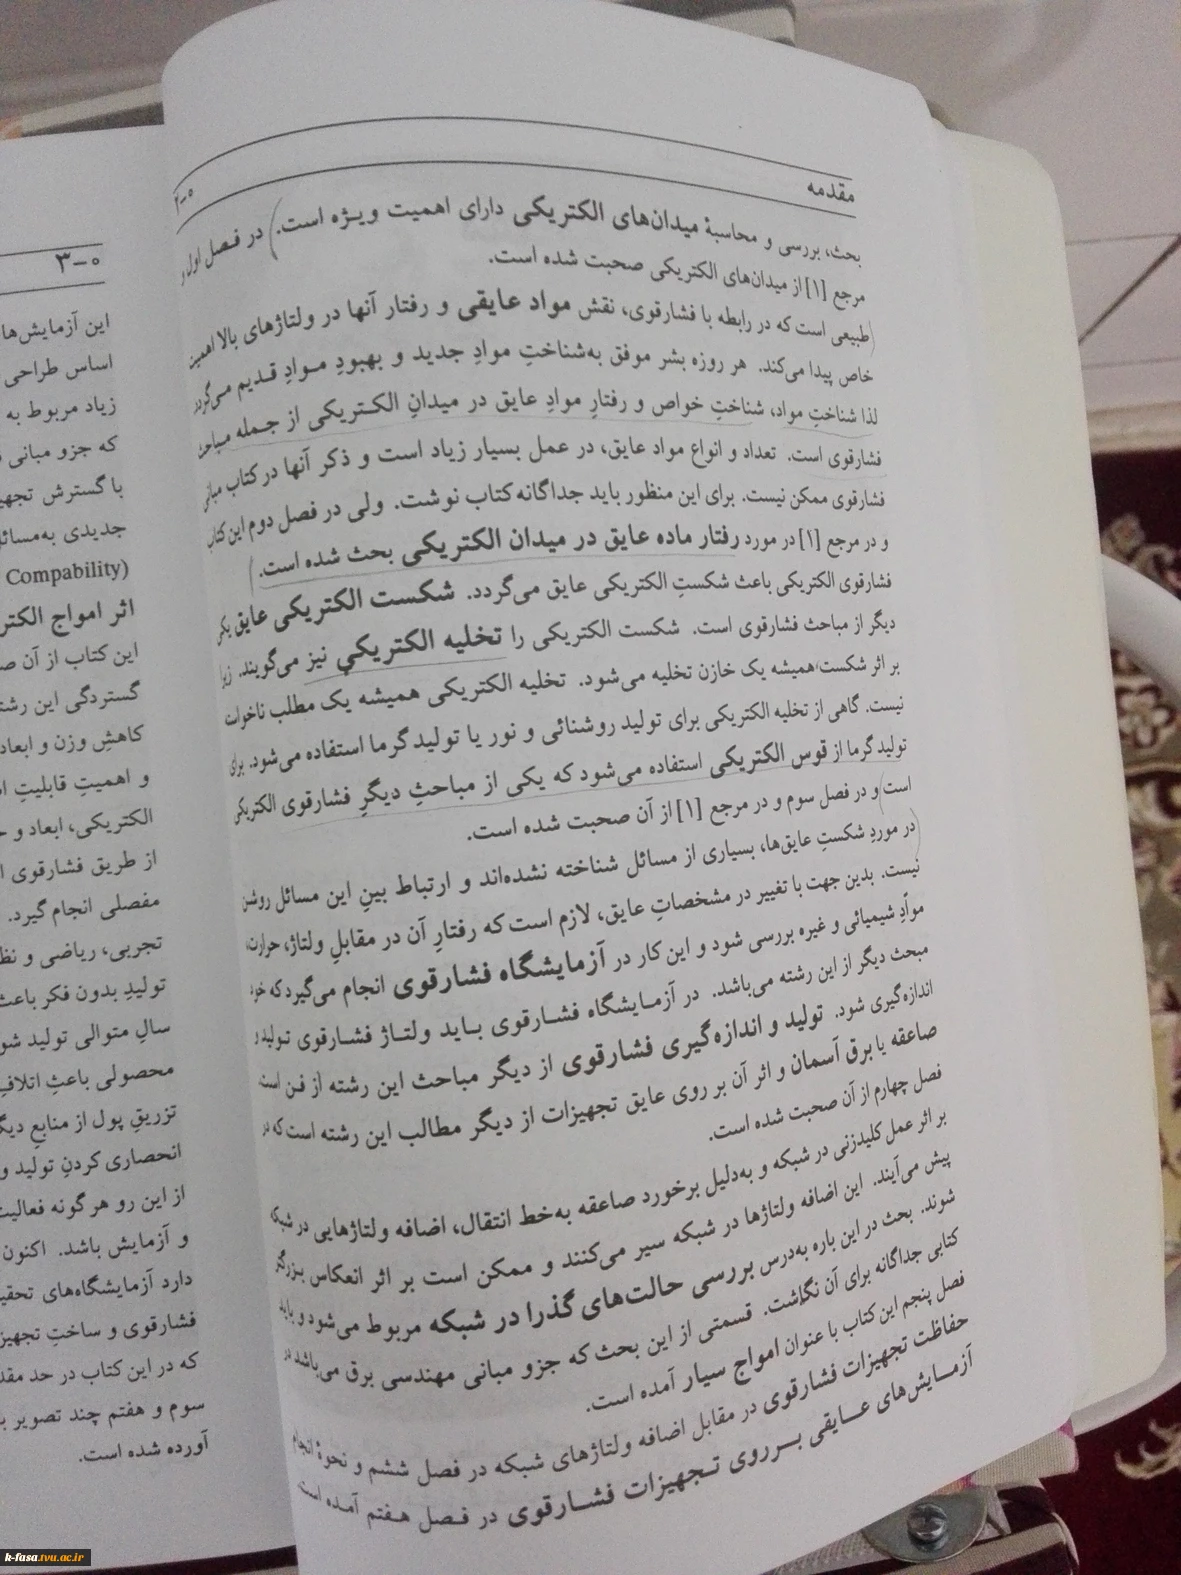 مقدمه
۰-۲
بحث، بررسی و محاسبهٔ میدان‌های الکتریکی دارای اهمیت ویژه است.) در فصل اول و
مرجع [۱] از میدان‌های الکتریکی صحبت شده است.
(طبیعی است که در رابطه با فشارقوی، نقش مواد عایقی و رفتار آنها در ولتاژهای بالا اهمیت
خاص پیدا می‌کند. هر روزه بشر موفق به‌شناختِ موادِ جدید و بهبودِ موادِ قدیم می‌گردد.
لذا شناختِ مواد، شناختِ خواص و رفتارِ موادِ عایق در میدانِ الکتریکی از جمله مباحث
فشارقوی است. تعداد و انواع مواد عایق، در عمل بسیار زیاد است و ذکر آنها در کتاب مبانی
فشارقوی ممکن نیست. برای این منظور باید جداگانه کتاب نوشت. ولی در فصل دوم این کتاب
و در مرجع [۱] در مورد رفتار ماده عایق در میدان الکتریکی بحث شده است.)
فشارقوی الکتریکی باعث شکستِ الکتریکی عایق می‌گردد. شکست الکتریکی عایق یکی
دیگر از مباحث فشارقوی است. شکست الکتریکی را تخلیه الکتریکی نیز می‌گویند. زیرا
بر اثر شکست، همیشه یک خازن تخلیه می‌شود. تخلیه الکتریکی همیشه یک مطلب ناخواسته
نیست. گاهی از تخلیه الکتریکی برای تولید روشنائی و نور یا تولید گرما استفاده می‌شود. برای
تولید گرما از قوس الکتریکی استفاده می‌شود که یکی از مباحثِ دیگرِ فشارقوی الکتریکی
است) و در فصل سوم و در مرجع [۱] از آن صحبت شده است.
(در موردِ شکستِ عایق‌ها، بسیاری از مسائل شناخته نشده‌اند و ارتباط بینِ این مسائل روشن
نیست. بدین جهت با تغییر در مشخصاتِ عایق، لازم است که رفتارِ آن در مقابلِ ولتاژ، حرارت،
موادِّ شیمیائی و غیره بررسی شود و این کار در آزمایشگاه فشارقوی انجام می‌گیرد که خود
مبحث دیگر از این رشته می‌باشد. در آزمایشگاه فشارقوی باید ولتاژ فشارقوی تولید و
اندازه‌گیری شود. تولید و اندازه‌گیری فشارقوی از دیگر مباحث این رشته از فن است.
صاعقه یا برق آسمان و اثر آن بر روی عایق تجهیزات از دیگر مطالب این رشته است که در
فصل چهارم از آن صحبت شده است.
بر اثر عمل کلیدزنی در شبکه و به‌دلیل برخورد صاعقه به‌خط انتقال، اضافه ولتاژهایی در شبکه
پیش می‌آیند. این اضافه ولتاژها در شبکه سیر می‌کنند و ممکن است بر اثر انعکاس بزرگتر
شوند. بحث در این باره به‌درس بررسی حالت‌های گذرا در شبکه مربوط می‌شود و باید
کتابی جداگانه برای آن نگاشت. قسمتی از این بحث که جزو مبانی مهندسی برق می‌باشد در
فصل پنجم این کتاب با عنوان امواج سیار آمده است.
حفاظت تجهیزات فشارقوی در مقابل اضافه ولتاژهای شبکه در فصل ششم و نحوهٔ انجام
آزمایش‌های عایقی برروی تجهیزات فشارقوی در فصل هفتم آمده است.
۰-۳
این آزمایش‌ها
اساس طراحی
زیاد مربوط به
که جزو مبانی
با گسترش
جدیدی به‌مسائل
(Compability
اثر امواج
این کتاب از آن
گستردگی این
کاهشِ وزن و ابعاد
و اهمیتِ قابلیتِ
الکتریکی، ابعاد و
از طریق فشارقوی
مفصلی انجام گیرد.
تجربی، ریاضی و
تولیدِ بدون فکر باعث
سالِ متوالی تولید
محصولی باعثِ
تزریقِ پول از منابعِ
انحصاری کردنِ تولید و
از این رو هر گونه
و آزمایش باشد. اکنون
دارد آزمایشگاه‌های
فشارقوی و ساختِ
که در این کتاب در حد
سوم و هفتم چند تصویر
آورده شده است.
k-fasa.tvu.ac.ir